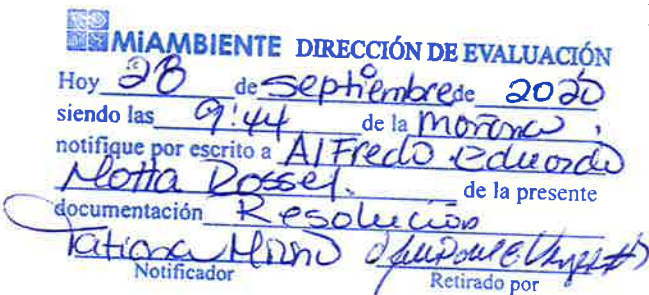 MiAMBIENTE DIRECCIÓN DE EVALUACIÓN
Hoy 28 de septiembre de 2020
siendo las 9:44 de la mañana,
notifique por escrito a Alfredo Eduardo
Motta Dossel. de la presente
documentación Resolución
Tatiana
Notificador Retirado por